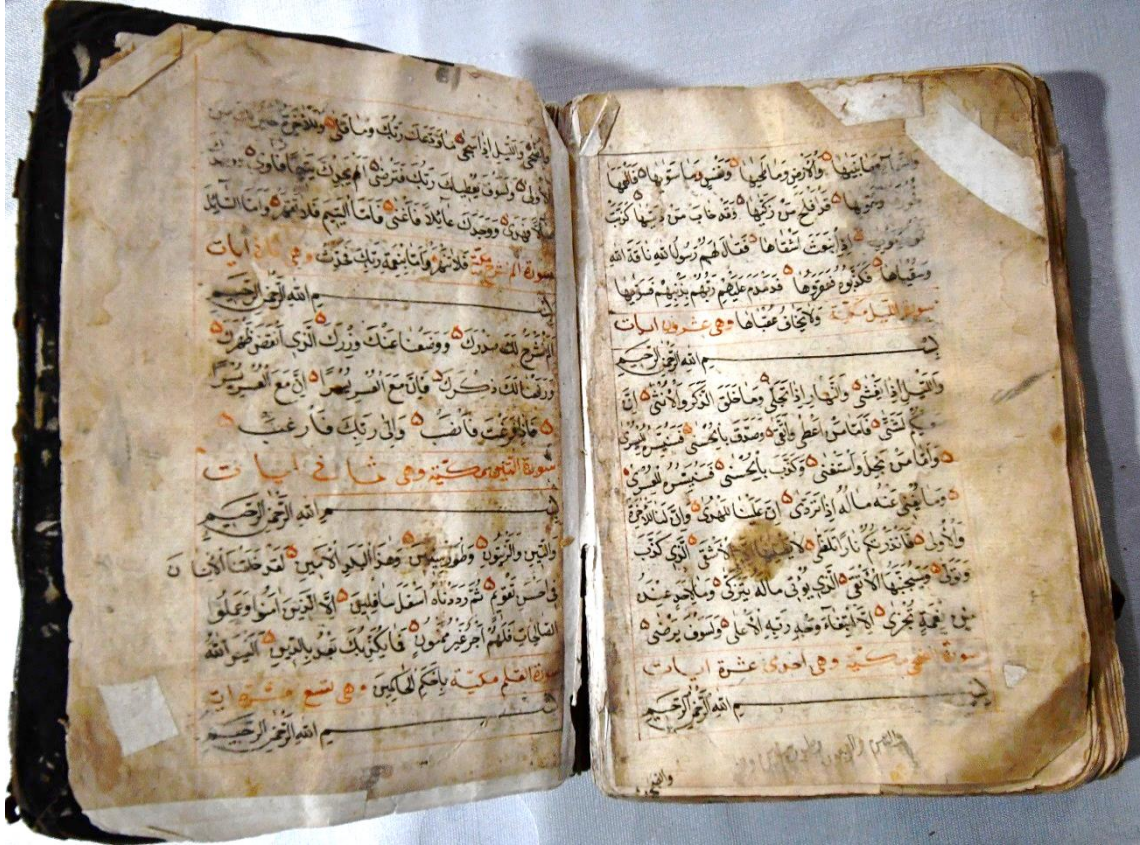 والسماء وما بنيها والأرض وما طحيها ونفس وما سويها فالهمها
وتقويها قد افلح من زكيها وقد خاب من دسيها كذبت
ثمود اذ انبعث اشقاها فقال لهم رسول الله ناقة الله
وسقياها فكذبوه فعقروها فدمدم عليهم ربهم بذنبهم فسويها
سورة الليل مكية ولا يخاف عقباها وهي عشرون ايات
بسم الله الرحمن الرحيم
والليل اذا يغشى والنهار اذا تجلى وما خلق الذكر والأنثى ان
سعيكم لشتى فاما من اعطى واتقى وصدق بالحسنى فسنيسره لليسرى
واما من بخل واستغنى وكذب بالحسنى فسنيسره للعسرى
وما يغني عنه ماله اذا تردى ان علينا للهدى وان لنا للاخرة
والأولى فانذرتكم نارا تلظى لا يصليها الا الأشقى الذي كذب
وتولى وسيجنبها الأتقى الذي يؤتي ماله يتزكى وما لاحد عنده
من نعمة تجزى الا ابتغاء وجه ربه الأعلى ولسوف يرضى
سورة الضحى مكية وهي احدى عشرة ايات
بسم الله الرحمن الرحيم
والتين والزيتون وطور سينين
والضحى
والضحى والليل اذا سجى ما ودعك ربك وما قلى وللاخرة خير لك من
الأولى ولسوف يعطيك ربك فترضى الم يجدك يتيما فاوى ووجدك
ضالا فهدى ووجدك عائلا فاغنى فاما اليتيم فلا تقهر واما السائل
سورة الم نشرح مكية فلا تنهر واما بنعمة ربك فحدث وهي ثمان ايات
بسم الله الرحمن الرحيم
الم نشرح لك صدرك ووضعنا عنك وزرك الذي انقض ظهرك
ورفعنا لك ذكرك فان مع العسر يسرا ان مع العسر يسرا
فاذا فرغت فانصب والى ربك فارغب
سورة التين مكية وهي ثماني ايات
بسم الله الرحمن الرحيم
والتين والزيتون وطور سينين وهذا البلد الأمين لقد خلقنا الأنسان
في احسن تقويم ثم رددناه اسفل سافلين الا الذين امنوا وعملوا
الصالحات فلهم اجر غير ممنون فما يكذبك بعد بالدين اليس الله
سورة القلم مكية باحكم الحاكمين وهي تسع عشرة ايات
بسم الله الرحمن الرحيم